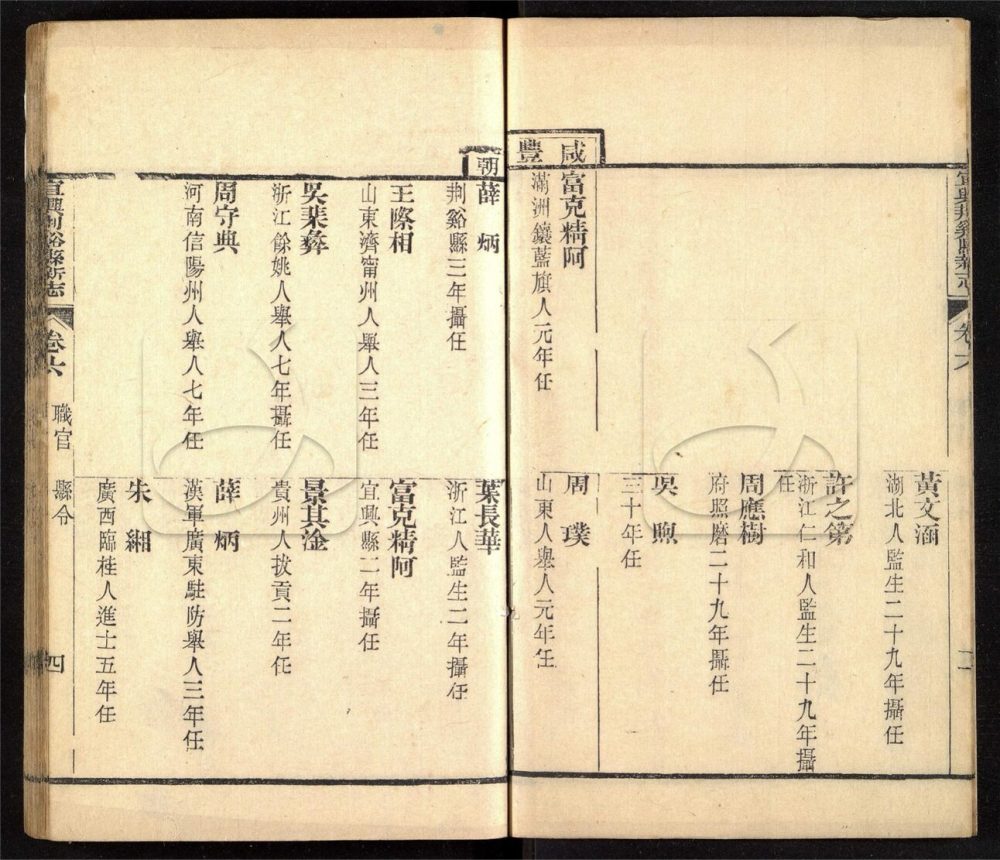 宜興荊谿縣新志
卷六
黃文涵
湖北人監生二十九年攝任
許之第
浙江仁和人監生二十九年攝
任
周應樹
府照磨二十九年攝任
吳煦
三十年任
咸豐
富克精阿
滿洲鑲藍旗人元年任
周璞
山東人舉人元年任
朝
薛炳
荆谿縣三年攝任
王際相
山東濟甯州人舉人三年任
吳棐彝
浙江餘姚人舉人七年攝任
周守典
河南信陽州人舉人七年任
葉長華
浙江人監生二年攝任
富克精阿
宜興縣二年攝任
景其淦
貴州人拔貢二年任
薛炳
漢軍廣東駐防舉人三年任
朱緗
廣西臨桂人進士五年任
宜興荊谿縣新志
卷六
職官
縣令
四